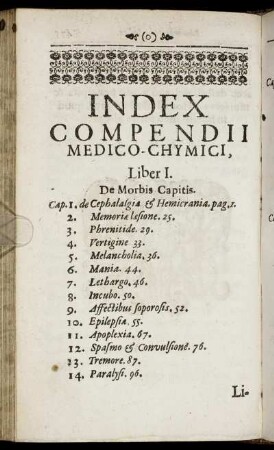 (0)
INDEX
COMPENDII
MEDICO-CHYMICI,
Liber I.
De Morbis Capitis.
Cap. 1. de Cephalalgiæ & Hemicrania. pag. 1.
2. Memoriæ læsione. 25.
3. Phrenitide. 29.
4. Vertigine 33.
5. Melancholia. 36.
6. Mania. 44.
7. Lethargo. 46.
8. Incubo. 50.
9. Affectibus soporosis. 52.
10. Epilepsiæ. 55.
11. Apoplexia. 67.
12. Spasmo & Convulsionē. 76.
13. Tremore. 87.
14. Paralysi. 96.
Li-